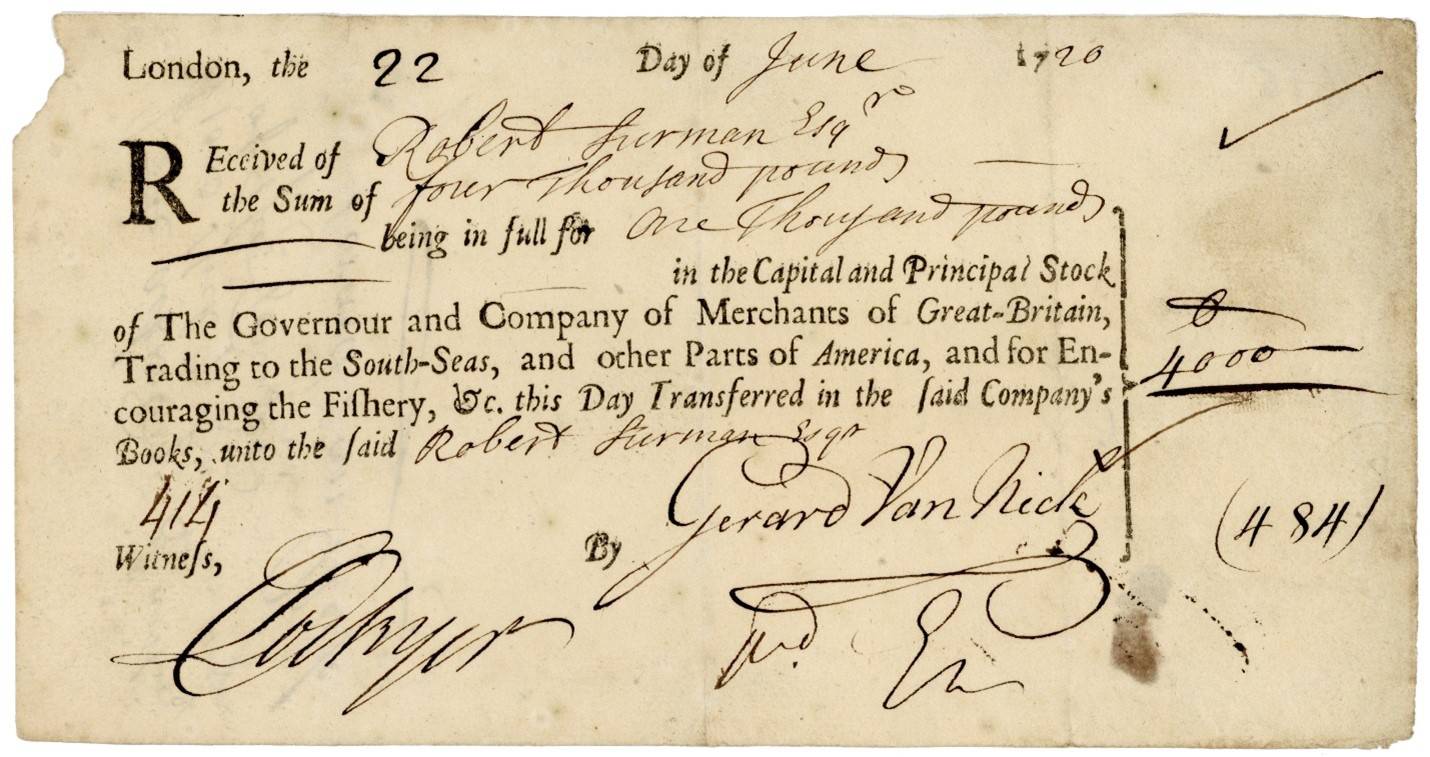 London, the 22 Day of June 1720
REceived of Robert Surman Esqr
the Sum of four Thousand pounds
being in full for One Thousand pounds
in the Capital and Principal Stock
of The Governour and Company of Merchants of Great-Britain,
Trading to the South-Seas, and other Parts of America, and for En-
couraging the Fiſhery, &c. this Day Transferred in the ſaid Company's
Books, unto the ſaid Robert Surman Esqr
4000
414
Witneſs, By Gerard Van Nick
(484)
Lockyer